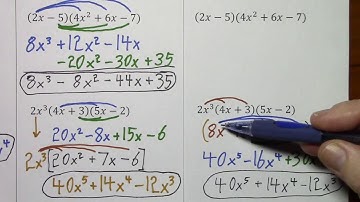 (2x - 5)(4x² + 6x - 7)
8x³ + 12x² - 14x
-20x² - 30x + 35
8x³ - 8x² - 44x + 35
2x³(4x + 3)(5x - 2)
20x² - 8x + 15x - 6
2x³[20x² + 7x - 6]
40x⁵ + 14x⁴ - 12x³
(2x - 5)(4x² + 6x - 7)
2x³(4x + 3)(5x - 2)
(8x
40x⁵ - 16x⁴ +
40x⁵ + 14x⁴ - 12x³